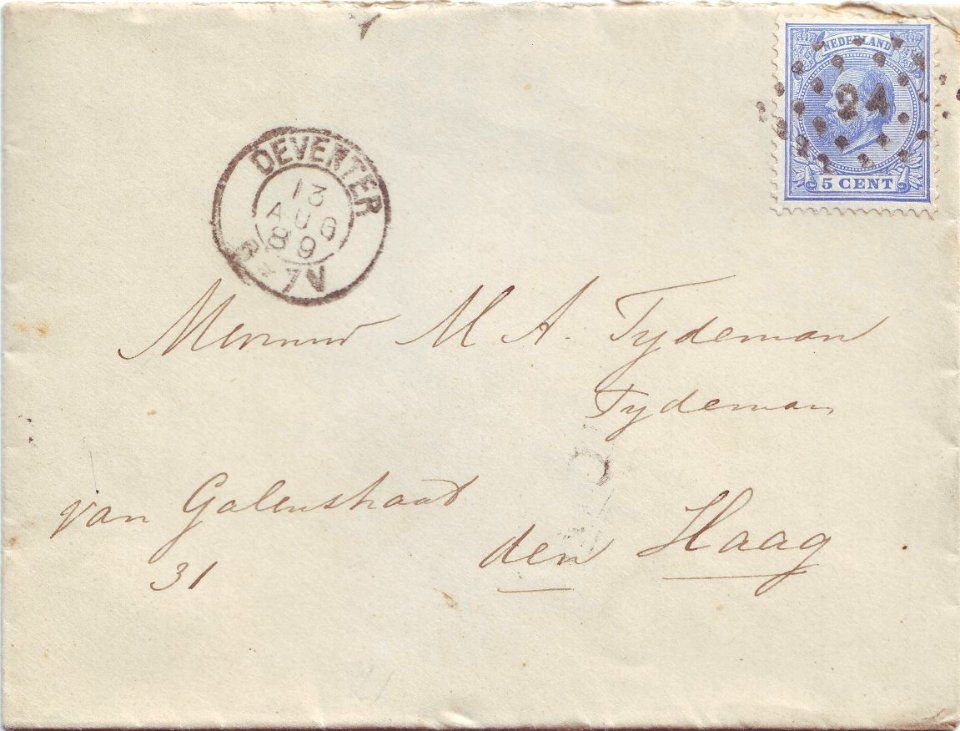 NEDERLAND
24
5 CENT
DEVENTER
13
AUG
89
7V
M A. Tydeman
Tydeman
van Galenstraat
31
den Haag